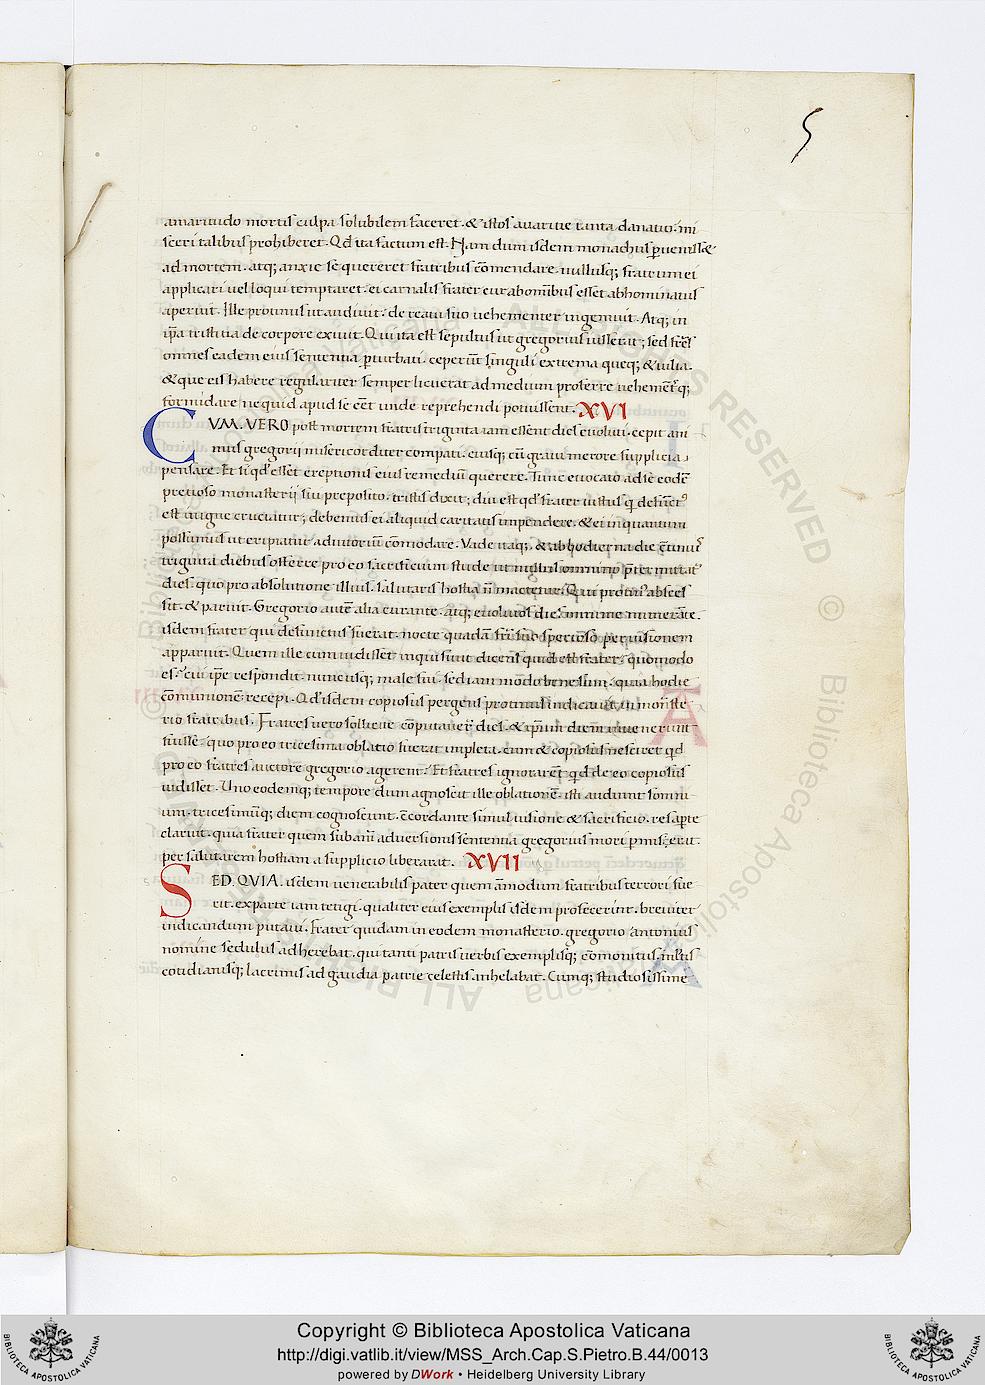 5
amaritudo mortis culpa solubilem faceret. & istos avaritie tanta dānatio. mi
sceri talibus prohiberet. Qd ita factum est. Nam dum isdem monachus p̱venisset
ad mortem. atq; anxie se quereret fratribus cōmendare. nullusq; fratrum ei
applicari vel loqui temptaret. ei carnalis frater cur ab omībus esset abhominatus
aperuit. Ille protinus ut audivit. de reatu suo vehementer ingemuit. Atq; in
ip̄a tristitia de corpore exivit. Qui ita est sepultus ut gregorius iusserat; sed fr̄es
omnes eadem eius sententia p̱turbati. ceperūt singuli extrema queq; & vilia.
& que eis habere regulariter semper licuerat ad medium proferre vehement̄q;
formidare ne quid apud se eēt unde reprehendi potuissent. XVI
CVM. VERO post mortem fratris triginta iam essent dies evoluti. cepit ani
mus gregorij misericorditer compati. eiusq; cū gravi merore supplicia
pensare. Et si qd esset ereptionis eius remediū querere. Tunc evocato ad se eodē
precioso monasterij sui preposito. tristis dixit; diu est qd frater iustus q defunct9
est in igne cruciatur; debemus ei aliquid caritatis impendere. & ei inquantum
possumus ut eripiatur adiutoriū cōmodare. Vade itaq;. & ab hodierna die cōtinuis
triginta diebus offerre pro eo sacrificium stude ut nullus omnino p̄termittat
dies. quo pro absolutione illius. salutaris hostia n̄ mactetur. Qui protin9 absces
sit. & paruit. Gregorio autē alia curante. atq; evolutos dies minime numerāte.
isdem frater qui defunctus fuerat. nocte quadā fri suo specioso per visionem
apparuit. Quem ille cum vidisset inquisivit dicens quid est frater. quomodo
es? cui ip̄e respondit. nuncusq; male fui. sed iam modo bene sum. quia hodie
cōmunionē recepi. Qd isdem copiosus pergens protinus indicavit in monaste
rio fratribus. Fratres vero sollicite cōputaver̄ dies. & ip̄um diem invenerunt
fuisse. quo pro eo tricesima oblatio fuerat impleta. cum & copiosus nesciret qd
pro eo fratres auctore gregorio agerent. Et fratres ignorarēt qd de eo copiosus
vidisset. Uno eodemq; tempore dum agnoscit ille oblationē. isti audiunt somni
um. tricesimūq; diem cognoscunt. ēcordante simul visione & sacrificio. res ap̱te
claruit. quia frater quem sub anni adversionis sententia gregorius mori p̱miserat.
per salutarem hostiam a supplicio liberarit. XVII
SED. QVIA. isdem venerabilis pater quem amodum fratribus terrori fue
rit. ex parte iam tetigi. qualiter eius exemplis isdem profecerint. breviter
indicandum putavi. Frater quidam in eodem monasterio. gregorio antonius
nomine sedulus adherebat. qui tanti patris verbis exemplisq; cōmonitus. multis
cotidianisq; lacrimis ad gaudia patrie celestis anhelabat. Cumq; studiosissime
Copyright © Biblioteca Apostolica Vaticana
http://digi.vatlib.it/view/MSS_Arch.Cap.S.Pietro.B.44/0013
powered by DWork • Heidelberg University Library